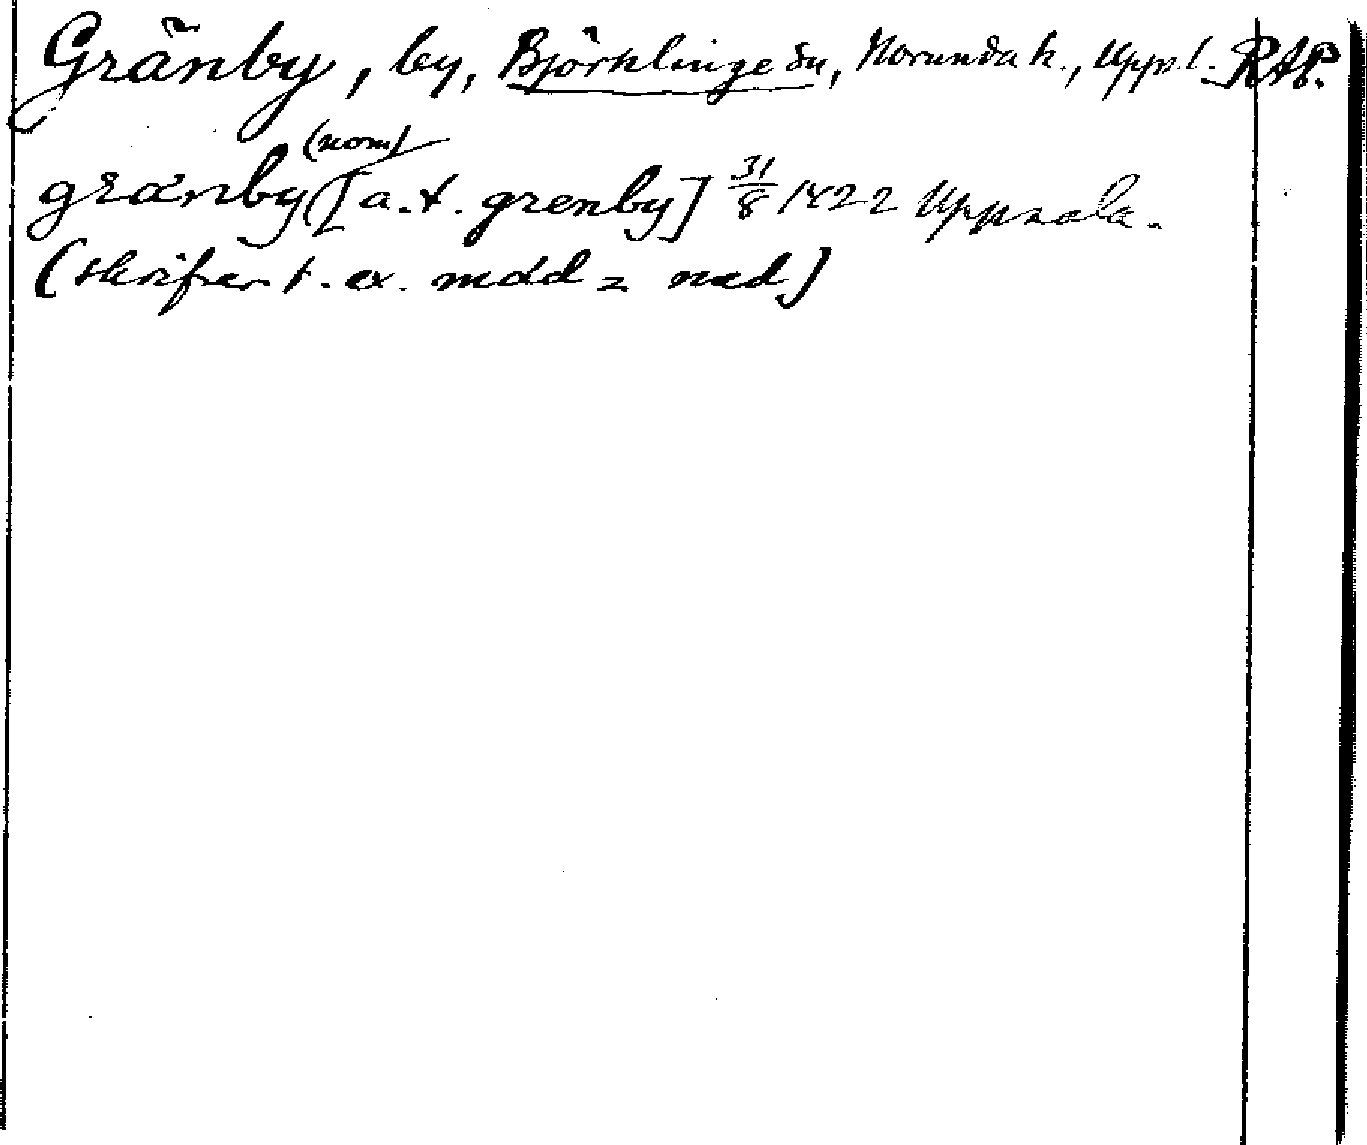 Gränby, by, Björklinge sn, Norunda h., Uppl. RAP.
(nom)
granby [a.t. grenby] 31/8 1422 Uppsala.
(skrifver t. ex. mdd = med)